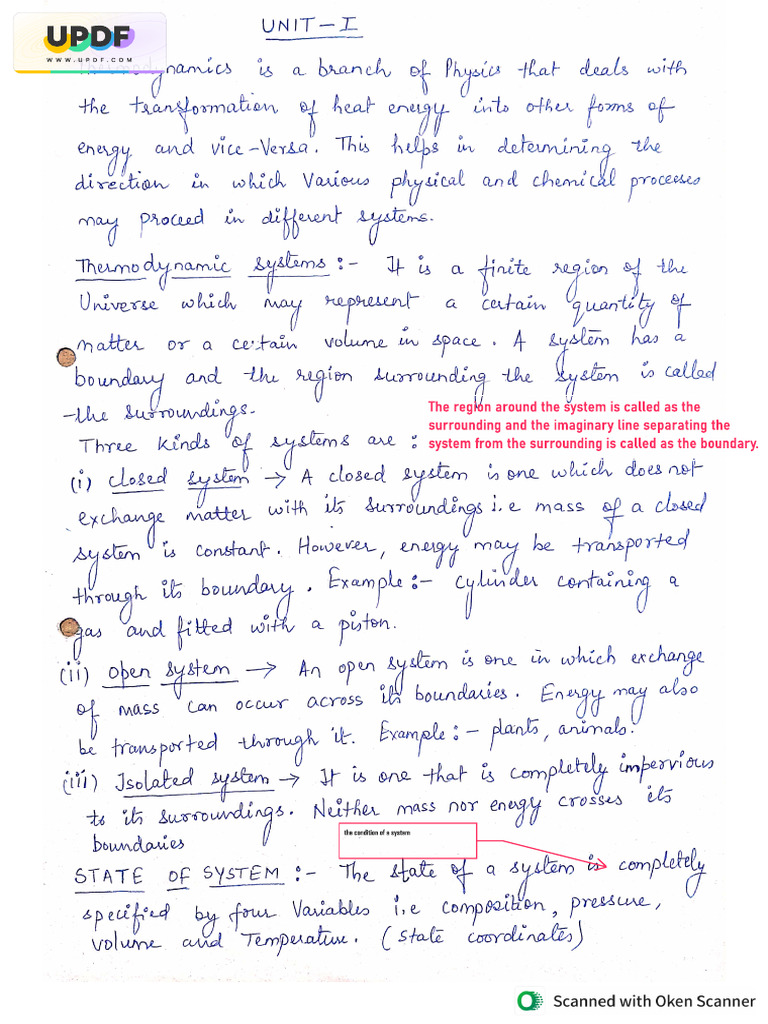 UPDF
WWW.UPDF.COM
UNIT-I
Thermodynamics is a branch of Physics that deals with
the transformation of heat energy into other forms of
energy and vice-Versa. This helps in determining the
direction in which various physical and chemical processes
may proceed in different systems.
Thermodynamic systems :- It is a finite region of the
Universe which may represent a certain quantity of
matter or a certain volume in space. A system has a
boundary and the region surrounding the system is called
the surroundings.
The region around the system is called as the
surrounding and the imaginary line separating the
system from the surrounding is called as the boundary.
Three kinds of systems are :
(i) closed system → A closed system is one which does not
exchange matter with its surroundings i.e mass of a closed
system is constant. However, energy may be transported
through its boundary. Example :- cylinder containing a
gas and fitted with a piston.
(ii) open system → An open system is one in which exchange
of mass can occur across its boundaries. Energy may also
be transported through it. Example :- plants, animals.
(iii) Isolated system → It is one that is completely impervious
to its surroundings. Neither mass nor energy crosses its
boundaries
the condition of a system
STATE OF SYSTEM :- The state of a system is completely
specified by four Variables i.e composition, pressure,
volume and Temperature. (state coordinates)
Scanned with Oken Scanner